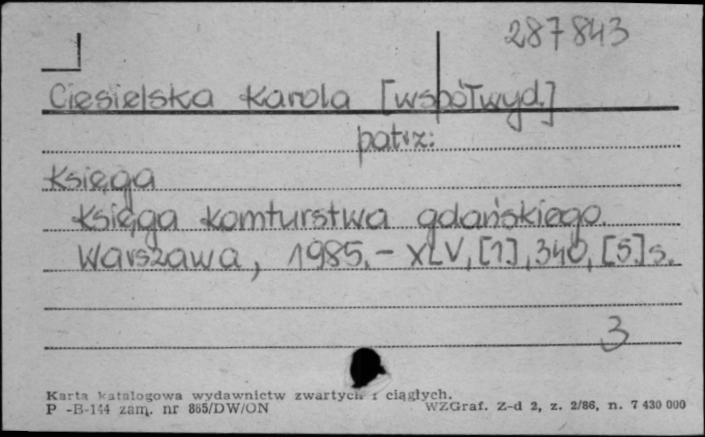 287843
Ciesielska Karola [współwyd.]
patrz:
Księga
Księga komturstwa gdańskiego.
Warszawa, 1985. - XLV, [1], 340, [5] s.
3
Karta katalogowa wydawnictw zwartych i ciągłych.
P -B-144 zam. nr 865/DW/ON WZGraf. Z-d 2, z. 2/86, n. 7 430 000